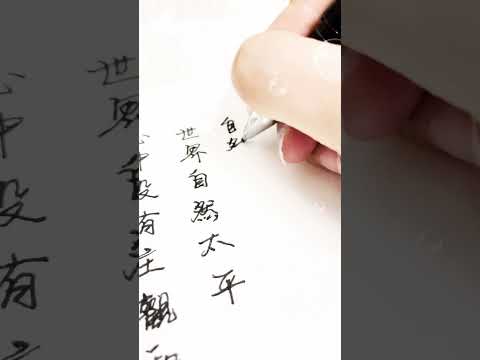 自
世界自然太平
心中没有主觀